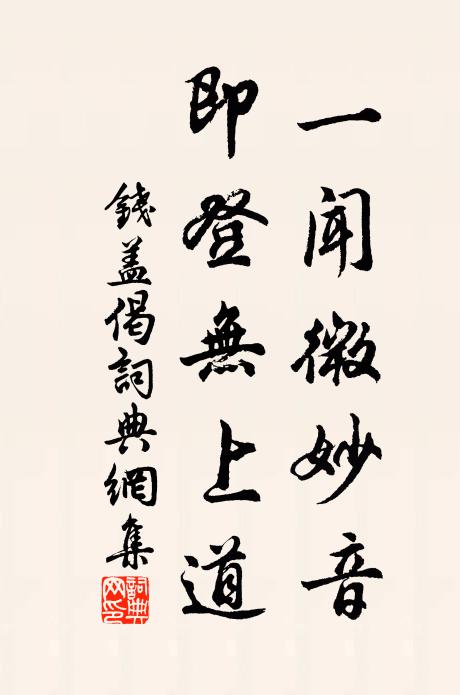 一聞微妙音
即登無上道
錢盖偈詞典網集
詞典
网印